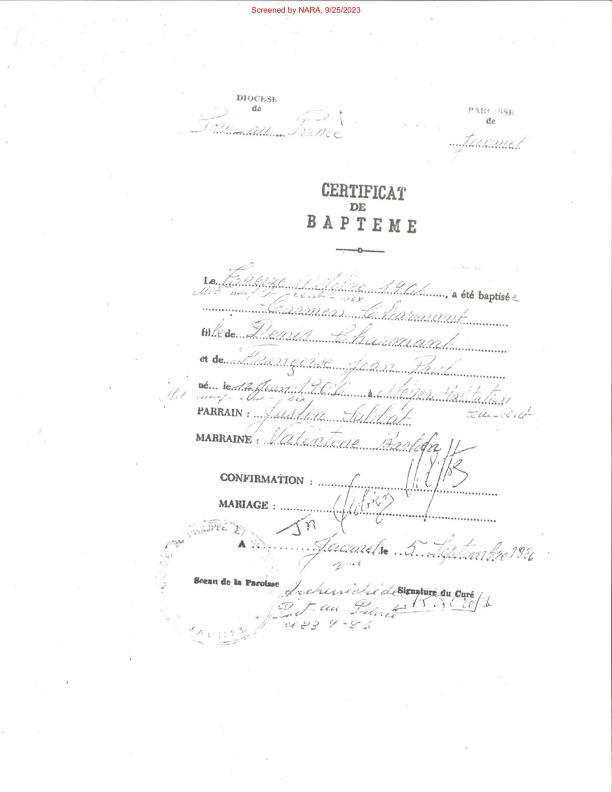 Screened by NARA, 9/25/2023
DIOCESE
de
Port-au-Prince
PAROISSE
de
Jacmel
CERTIFICAT
DE
BAPTEME
Le Treize Octobre 1906, a été baptisée
Mil neuf cent six
Carmen Charmant
fille de Denis Charmant
et de Françoise Jean Paul
né... le 12 Juin 1906 à
Mil neuf cent six
PARRAIN : Justin
MARRAINE : Valentine
CONFIRMATION :
MARIAGE :
A Jacmel le 5 Septembre 1986
Sceau de la Paroisse
Signature du Curé
Archevêché de
Port-au-Prince
ce 23-9-86
PHILIPPE ET
JACMEL